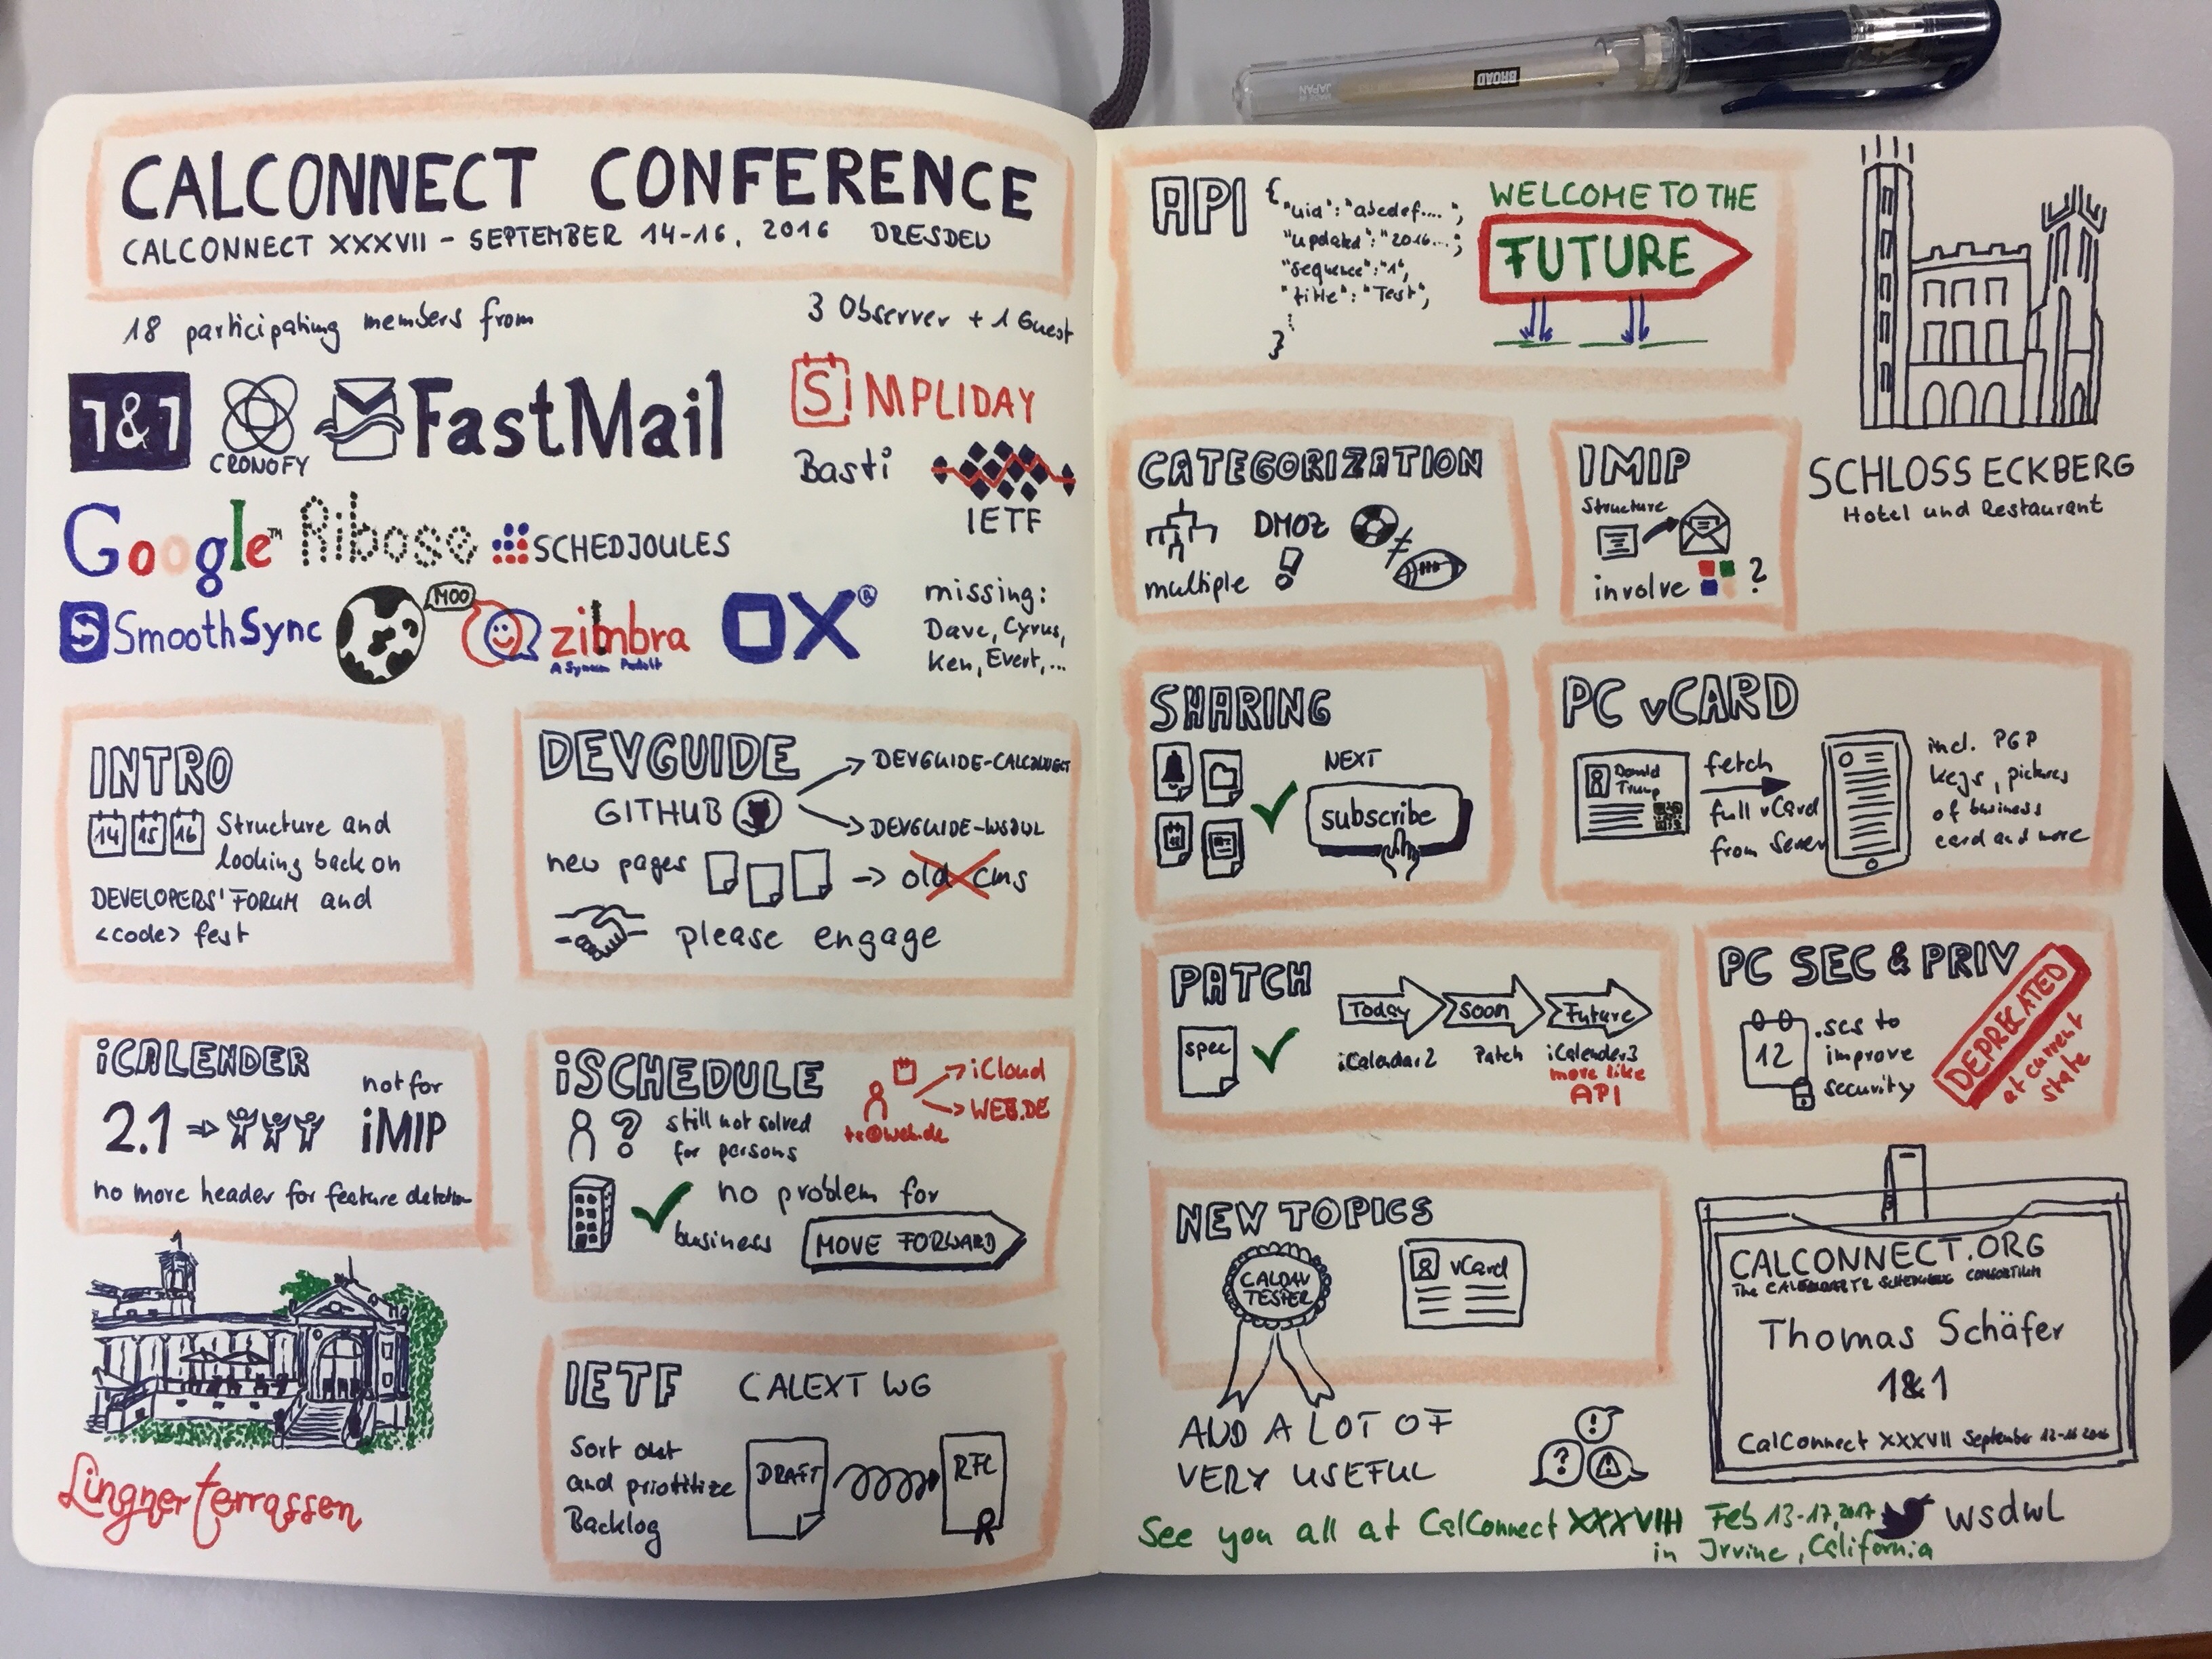 BROAD
MADE IN
JAPAN
CALCONNECT CONFERENCE
CALCONNECT XXXVII - SEPTEMBER 14-16, 2016 DRESDEN
18 participating members from
3 Observer + 1 Guest
1&1
CRONOFY
FastMail
SIMPLIDAY
Basti
IETF
Google™
Ribose
SCHEDJOULES
SmoothSync
MOO
zimbra
A Synacor Product
OX®
missing:
Dave, Cyrus,
Ken, Evert,...
INTRO
14 15 16 Structure and
looking back on
DEVELOPERS' FORUM and
<code> fest
DEVGUIDE
GITHUB
DEVGUIDE-CALCONNECT
DEVGUIDE-WSDWL
new pages -> old cms
please engage
iCALENDER
2.1 => not for
iMIP
no more header for feature detection
iSCHEDULE
? still not solved
for persons
iCloud
WEB.DE
ts@web.de
no problem for
business
MOVE FORWARD
Lingnerterrassen
IETF CALEXT WG
Sort out
and priotitize
Backlog
DRAFT
RFC
API
{
"uid":"abcdef....",
"updated":"2016...",
"sequence":"1",
"title":"Test",
⋮
}
WELCOME TO THE
FUTURE
SCHLOSS ECKBERG
Hotel und Restaurant
CATEGORIZATION
multiple
DMOZ
!
≠
IMIP
Structure
involve ?
SHARING
NEXT
subscribe
PC vCARD
Donald
Trump
fetch
full vCard
from Server
incl. PGP
keys, pictures
of business
card and more
PATCH
spec
Today Soon Future
iCalendar2 Patch iCalender3
more like
API
PC SEC & PRIV
12
.scs to
improve
security
DEPRECATED
at current
state
NEW TOPICS
CALDAV
TESTER
vCard
AND A LOT OF
VERY USEFUL
! ?
CALCONNECT.ORG
The CALENDARING & SCHEDULING CONSORTIUM
Thomas Schäfer
1&1
CalConnect XXXVII September 12-16 2016
See you all at CalConnect XXXVIII Feb 13-17, 2017
in Irvine, California
wsdwl